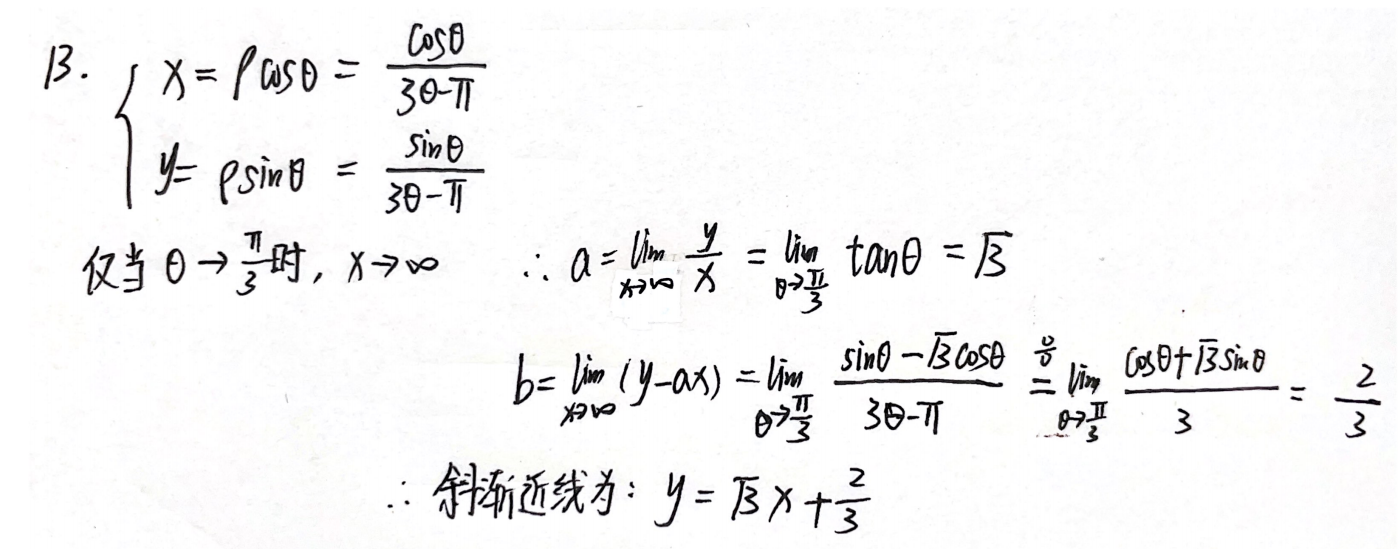 13. { x = ρcosθ = cosθ/(3θ-π)
y = ρsinθ = sinθ/(3θ-π)
仅当 θ→π/3时, x→∞ ∴ a = lim_{x→∞} y/x = lim_{θ→π/3} tanθ = √3
b = lim_{x→∞} (y-ax) = lim_{θ→π/3} (sinθ-√3cosθ)/(3θ-π) =^{0/0} lim_{θ→π/3} (cosθ+√3sinθ)/3 = 2/3
∴ 斜渐近线为: y = √3x + 2/3